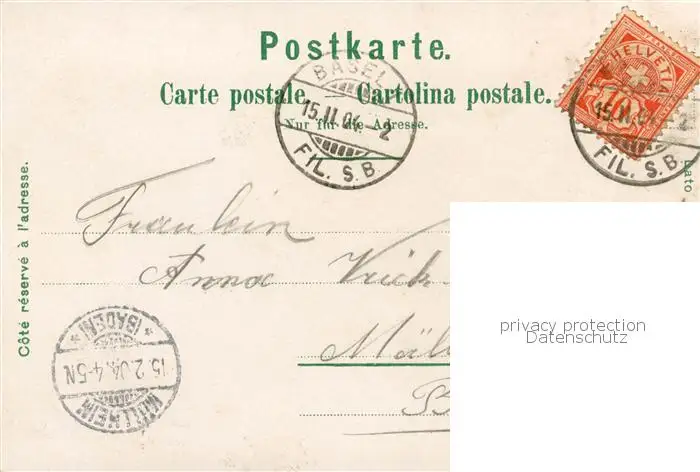 Postkarte.
Carte postale. Cartolina postale.
Nur für die Adresse.
BASEL
15.II.04 - 2
FIL. S.B.
HELVETIA
BASEL
15.II.04
FIL. S.B.
Lato
Côté réservé à l'adresse.
Fräulein
Anna
privacy protection
Datenschutz
MÜLLHEIM
15.2.04.4-5N
* (BADEN) *